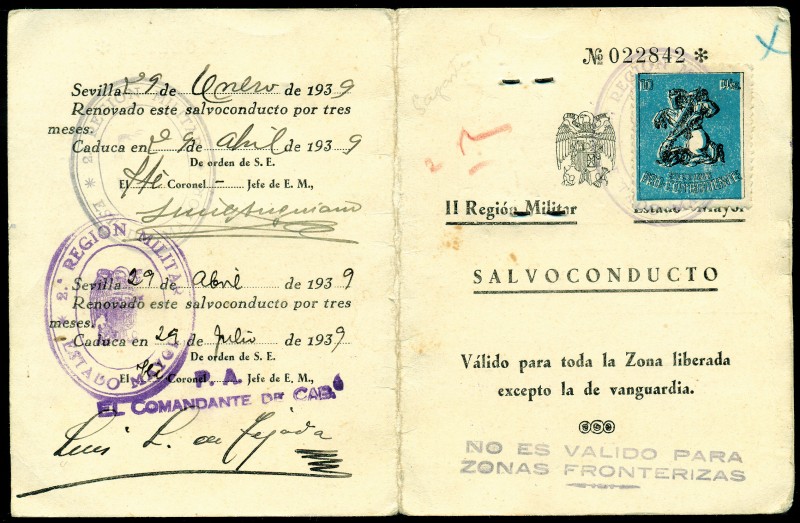 Sevilla 29 de Enero de 1939
Renovado este salvoconducto por tres
meses.
Caduca en 29 de abril de 1939
De orden de S. E.
El Tte Coronel - Jefe de E. M.,
2.ª REGION MILITAR
ESTADO MAYOR
Sevilla 29 de Abril de 1939
Renovado este salvoconducto por tres
meses.
Caduca en 29 de Julio de 1939
De orden de S. E.
El Tte Coronel Jefe de E. M.,
P. A.
EL COMANDANTE DE CAB.ª
Luis L. de Tejada
Nº 022842 *
REGION
10
PRO-COMBATIENTE
II Región Militar Estado Mayor
SALVOCONDUCTO
Válido para toda la Zona liberada
excepto la de vanguardia.
NO ES VALIDO PARA
ZONAS FRONTERIZAS